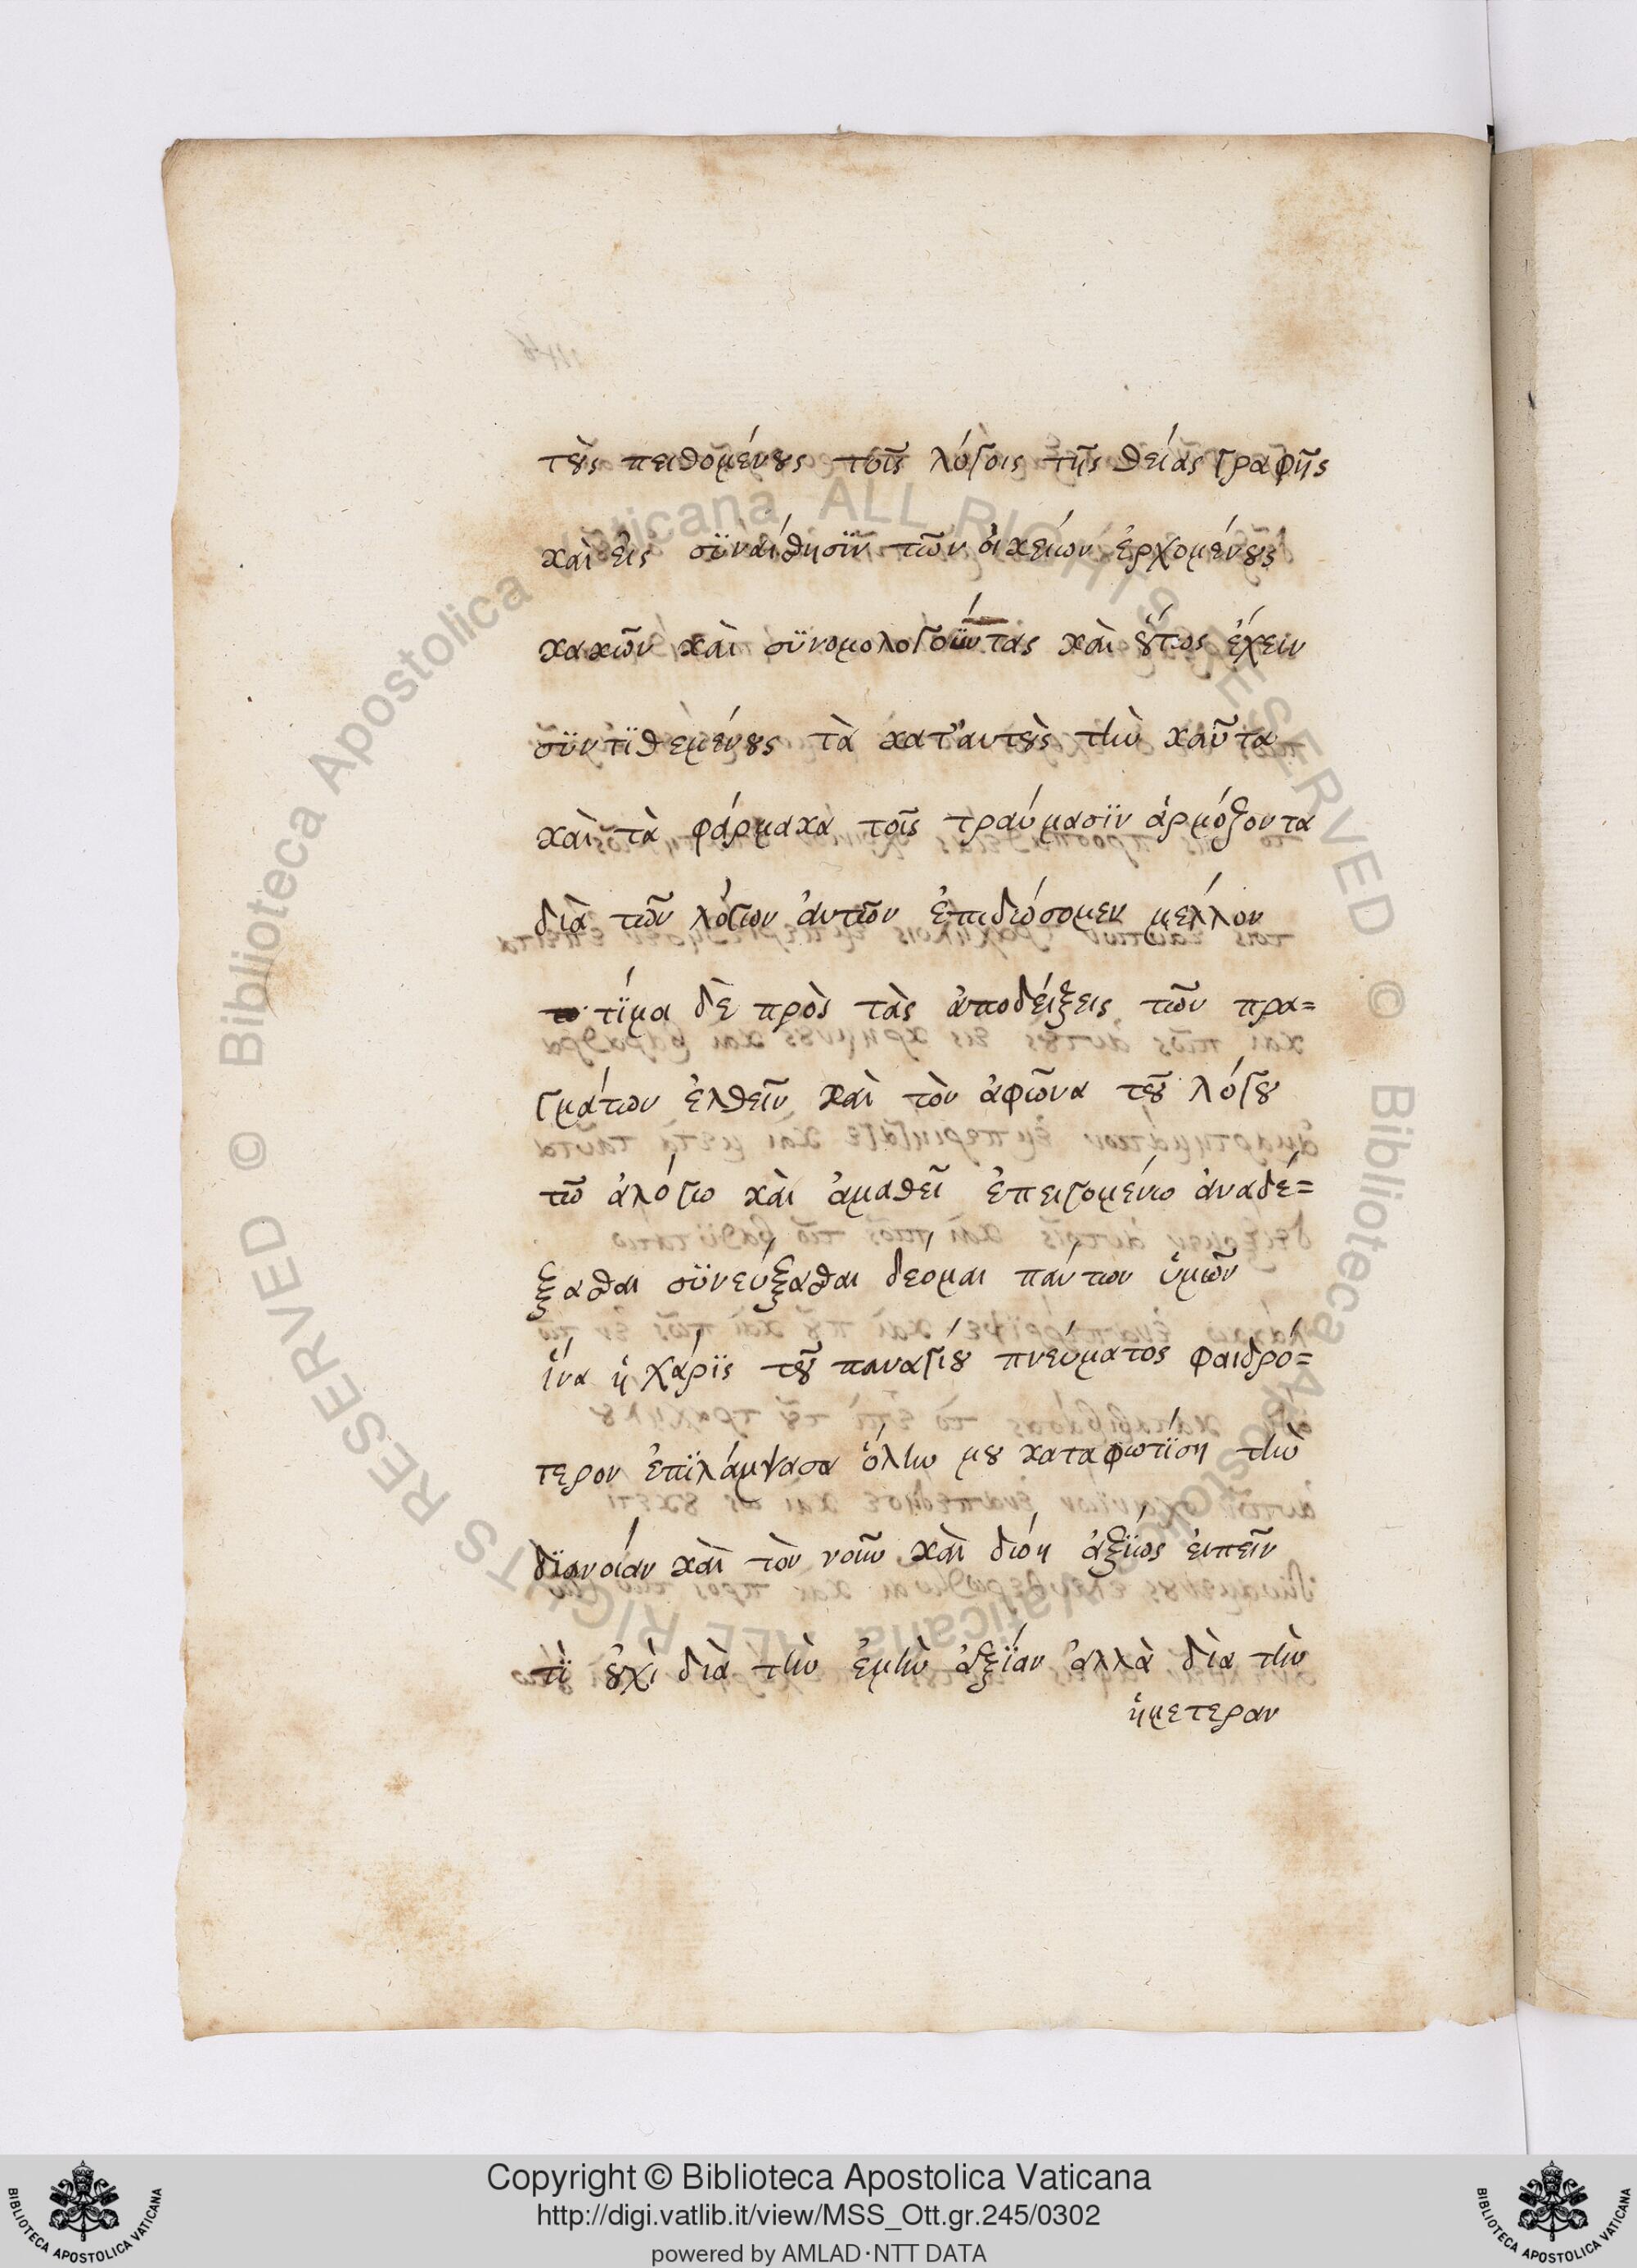 τοὺς πειθομένους τοῖς λόγοις τῆς θείας γραφῆς
καὶ ἐις σϋναίσθησϊν τῶν ὀικείων ἐρχομένους
κακῶν καὶ σϋνομολογοϋντας καὶ οὕτως ἔχειν
σϋντϊθεμένους τὰ κατ' αυτοὺς τὴν καῦτα
καὶ τὰ φάρμακα τοῖς τραύμασϊν ἁρμόζοντα
διὰ τῶν λόγων ἀυτῶν ἐπιδώσομεν μέλλον
τίμα δὲ πρὸς τὰς ἀποδείξεις τῶν πρα=
γμάτων ἐλθεῖν καὶ τὸν ἀφῶνα τοῦ λόγου
τῶ ἀλόγω καὶ ἀμαθεῖ ἐπειγομένω ἀναδέ=
ξασθαι σϋνεύξασθαι δεομαι πάντων ὑμῶν
ἵνα ἡ χάρϊς τοῦ παναγίου πνεύματος φαιδρό=
τερον ἐπϊλάμψασα ὅλην μου καταφωτϊση τὴν
δϊανοίαν καὶ τὸν νοῦν καὶ δώη ἀξϊως ἐιπεῖν
τϊ οὐχὶ διὰ τὴν ἐμὴν ἀξϊαν ἀλλὰ δὶα τὴν
ἡμετεραν
Copyright © Biblioteca Apostolica Vaticana
http://digi.vatlib.it/view/MSS_Ott.gr.245/0302
powered by AMLAD·NTT DATA
BIBLIOTECA APOSTOLICA VATICANA
BIBLIOTECA APOSTOLICA VATICANA
© Biblioteca Apostolica Vaticana ALL RIGHTS RESERVED © Biblioteca Apostolica Vaticana ALL RIGHTS RESERVED